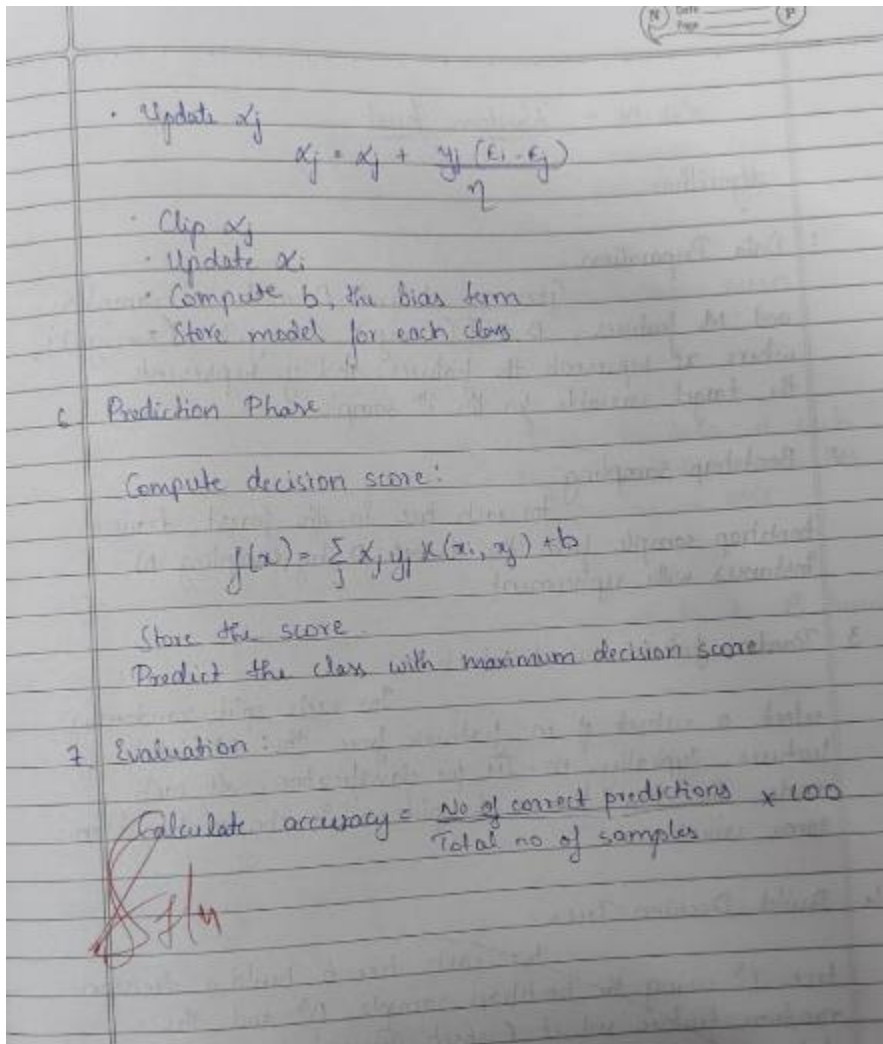 N Date
Page P
· Update αj
αj = αj + yj (Ei - Ej) / η
· Clip αj
· Update αi
· Compute b, the bias term
· Store model for each class
6 Prediction Phase
Compute decision score:
f(x) = Σj αj yj K(xi, xj) + b
Store the score.
Predict the class with maximum decision score
7 Evaluation:
Calculate accuracy = No of correct predictions / Total no of samples × 100